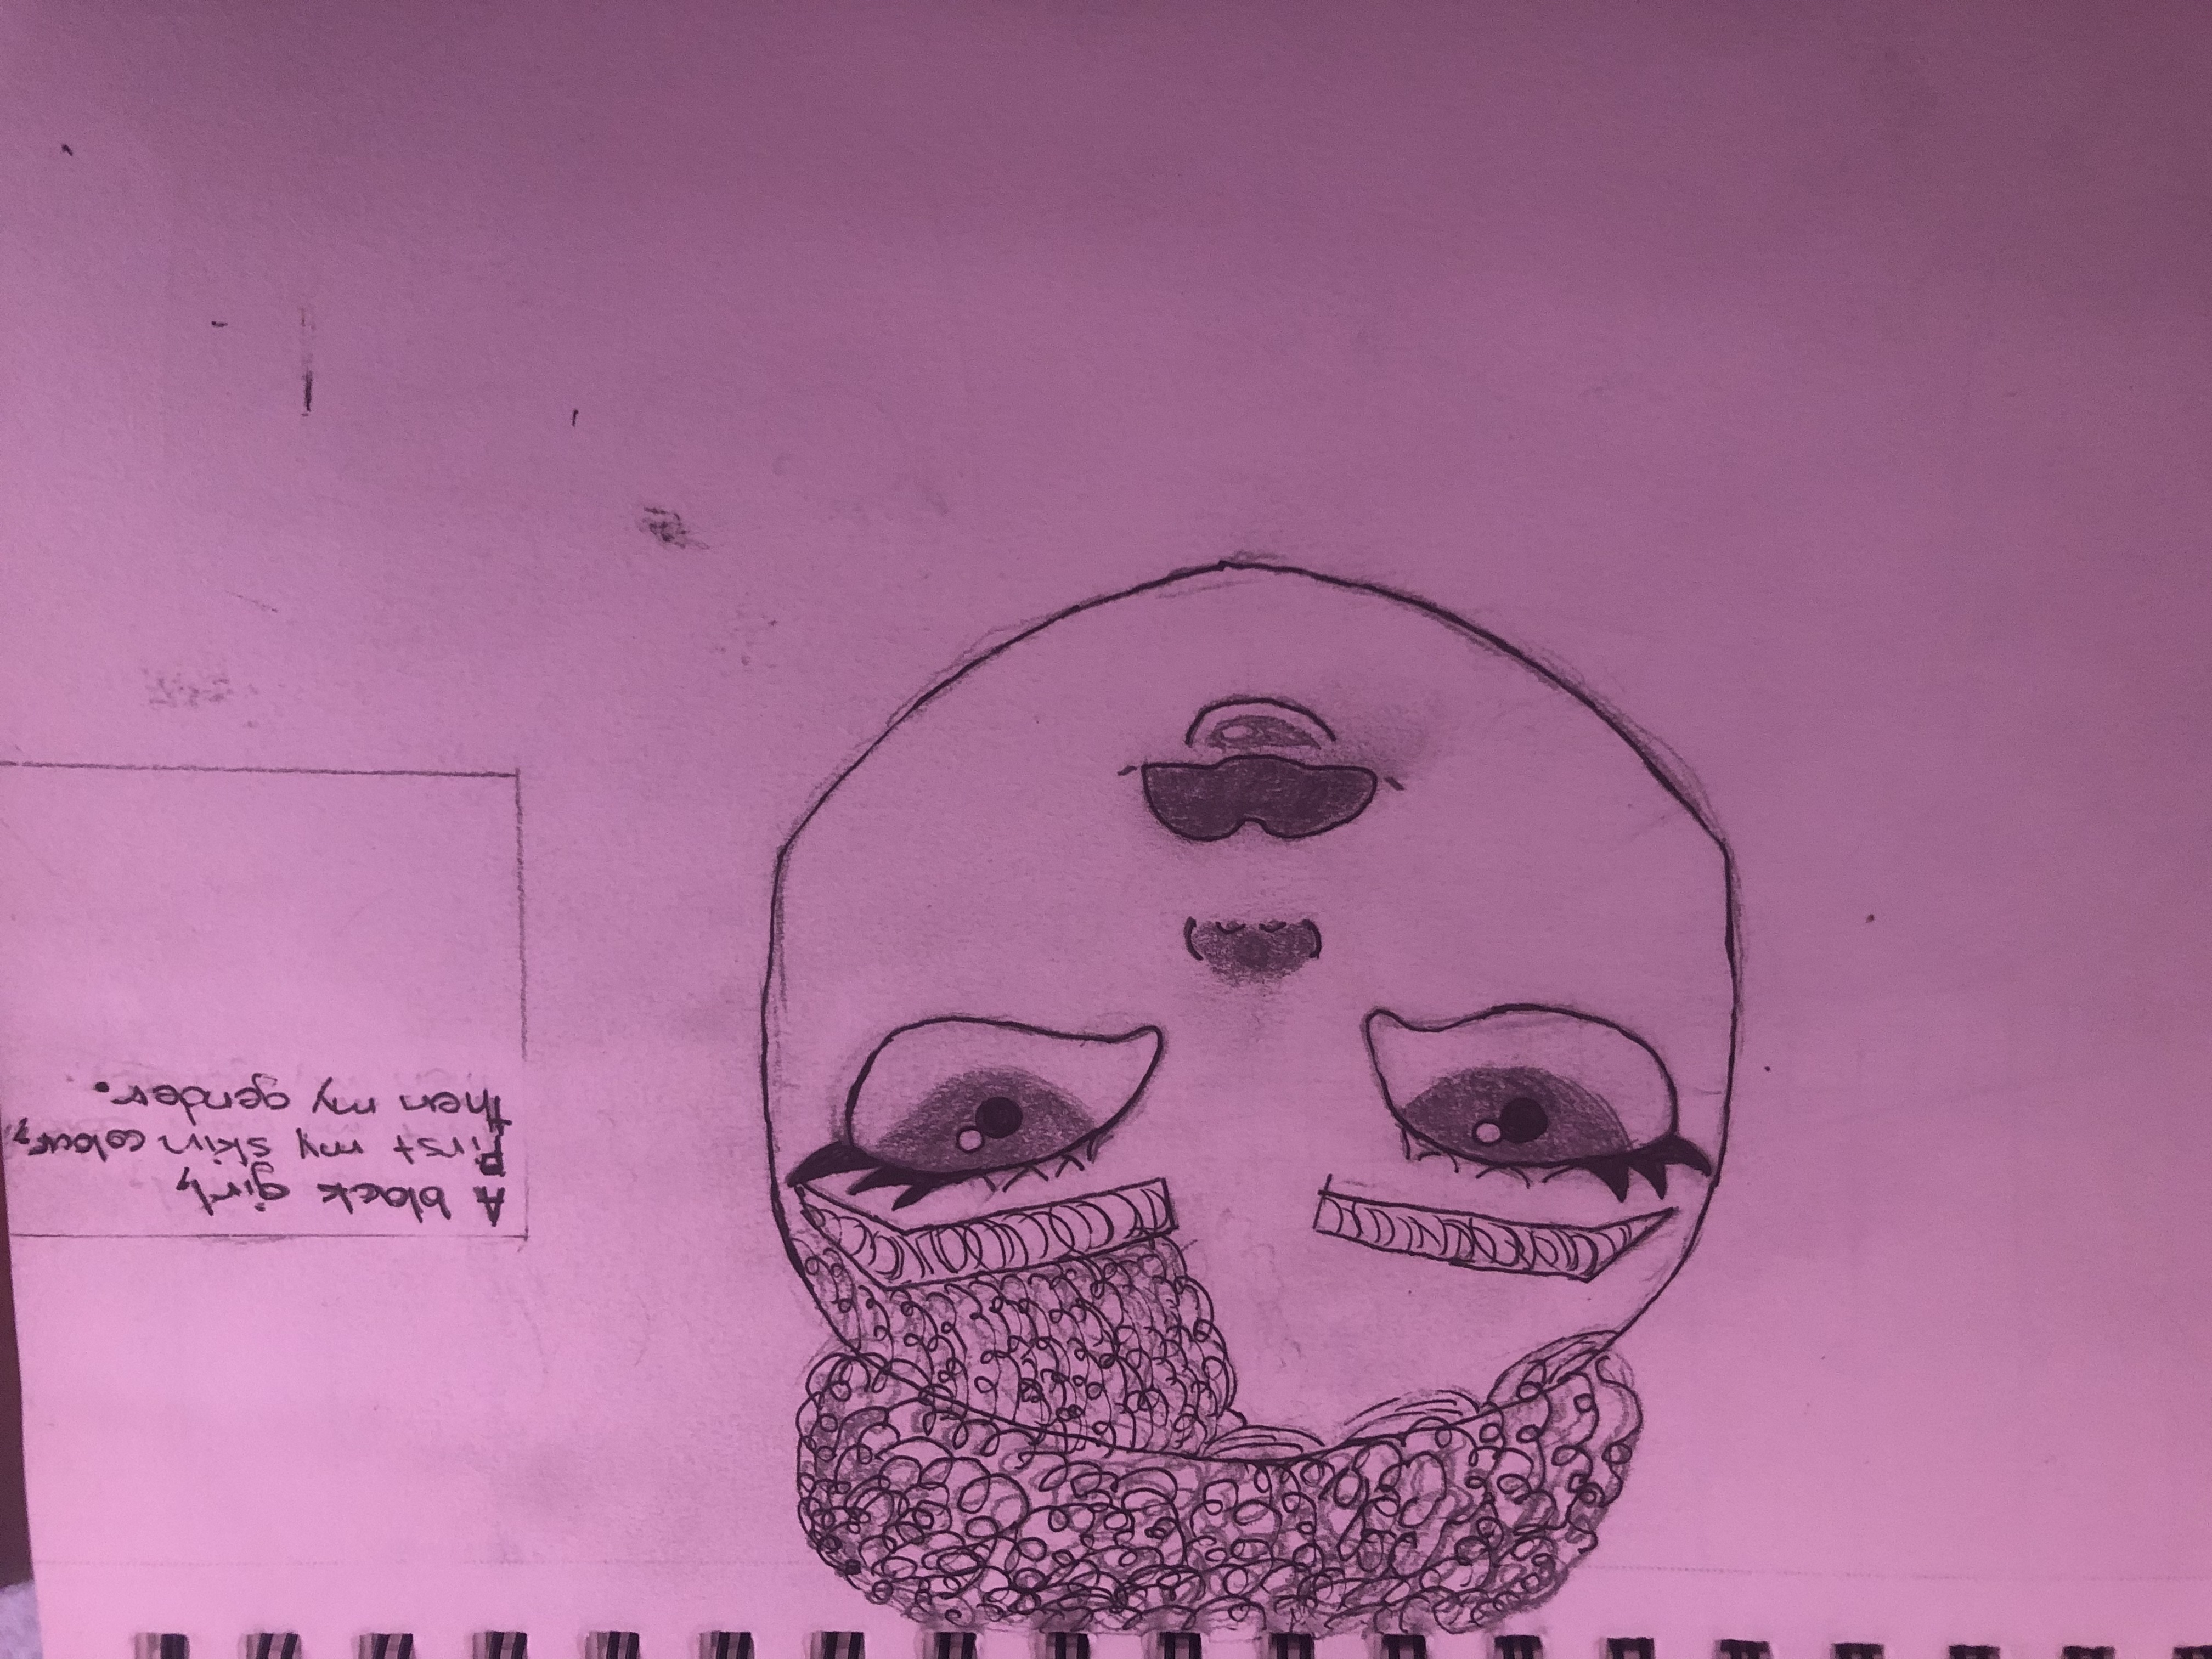 A black girl,
First my skin colour,
then my gender.